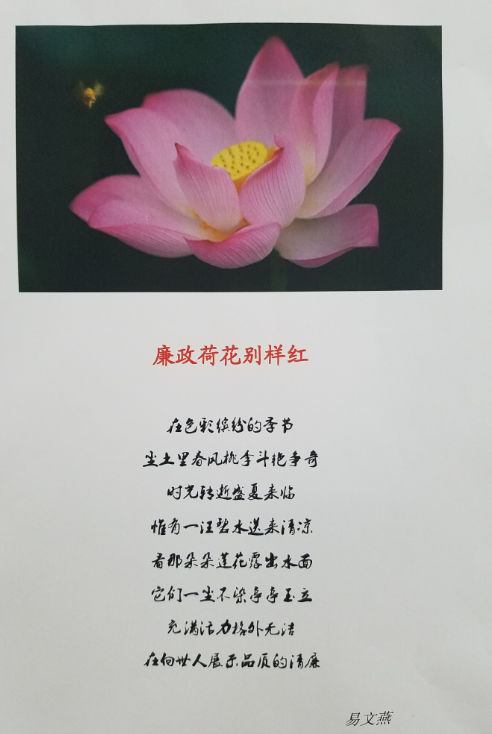 廉政荷花别样红
在色彩缤纷的季节
尘土里春风桃李斗艳争奇
时光转逝盛夏来临
惟有一汪碧水送来清凉
看那朵朵莲花露出水面
它们一尘不染亭亭玉立
充满活力格外无洁
在向世人展示品质的清廉
易文燕